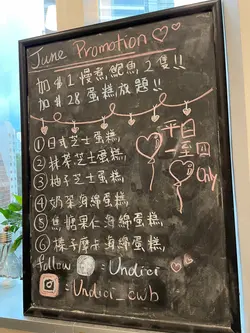 June Promotion
加 $1 慢煮鮑魚 2 隻!!
加 $28 蛋糕放題!!
① 日式芝士蛋糕,
② 抹茶芝士蛋糕,
③ 柚子芝士蛋糕,
④ 奶茶海綿蛋糕,
⑤ 焦糖果仁海綿蛋糕,
⑥ 榛子摩卡海綿蛋糕,
平日
一至四
Only
follow = Undici
= Undici_cwb